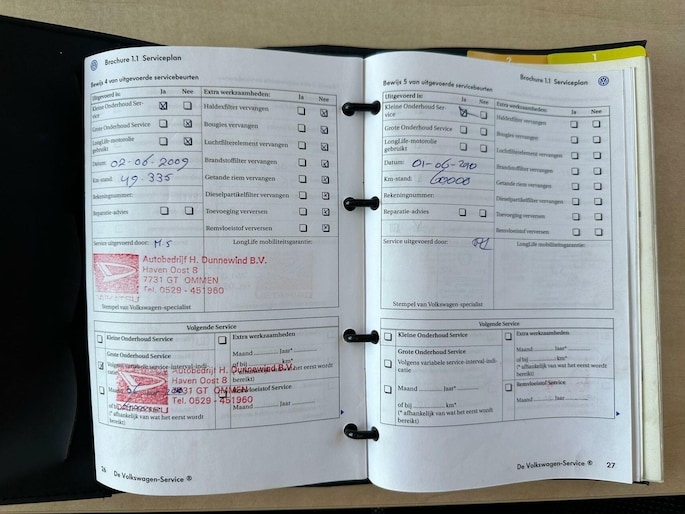 Brochure 1.1 Serviceplan
Bewijs 4 van uitgevoerde servicebeurten
Uitgevoerd is: Ja Nee
Kleine Onderhoud Ser-
vice
Grote Onderhoud Service
LongLife-motorolie
gebruikt
Datum: 02-06-2009
Km-stand: 49.335
Rekeningnummer:
Reparatie-advies
Extra werkzaamheden: Ja Nee
Haldexfilter vervangen
Bougies vervangen
Luchtfilterelement vervangen
Brandstoffilter vervangen
Getande riem vervangen
Dieselpartikelfilter vervangen
Toevoeging verversen
Remvloeistof verversen
Service uitgevoerd door: M.S
LongLife mobiliteitsgarantie:
Autobedrijf H. Dunnewind B.V.
Haven Oost 8
7731 GT OMMEN
Tel. 0529 - 451960
DAIHATSU
Stempel van Volkswagen-specialist
Volgende Service
Kleine Onderhoud Service
Grote Onderhoud Service
Volgens variabele service-interval-indi-
catie
Maand
of bij km*
(* afhankelijk van wat het eerst wordt
bereikt)
Extra werkzaamheden
Maand Jaar*
of bij km*
(* afhankelijk van wat het eerst wordt
bereikt)
Remvloeistof Service
Maand Jaar
Autobedrijf H. Dunnewind B.V.
Haven Oost 8
7731 GT OMMEN
Tel. 0529 - 451960
DAIHATSU
26 De Volkswagen-Service ®
2
1
Brochure 1.1 Serviceplan
Bewijs 5 van uitgevoerde servicebeurten
Uitgevoerd is: Ja Nee
Kleine Onderhoud Ser-
vice
Grote Onderhoud Service
LongLife-motorolie
gebruikt
Datum: 01-06-
Km-stand: 60008
Rekeningnummer:
Reparatie-advies
Extra werkzaamheden: Ja Nee
Haldexfilter vervangen
Bougies vervangen
Luchtfilterelement vervangen
Brandstoffilter vervangen
Getande riem vervangen
Dieselpartikelfilter vervangen
Toevoeging verversen
Remvloeistof verversen
Service uitgevoerd door:
LongLife mobiliteitsgarantie:
Stempel van Volkswagen-specialist
Volgende Service
Kleine Onderhoud Service
Grote Onderhoud Service
Volgens variabele service-interval-indi-
catie
Maand Jaar*
of bij km*
(* afhankelijk van wat het eerst wordt
bereikt)
Extra werkzaamheden
Maand Jaar*
of bij km*
(* afhankelijk van wat het eerst wordt
bereikt)
Remvloeistof Service
Maand Jaar
De Volkswagen-Service ® 27